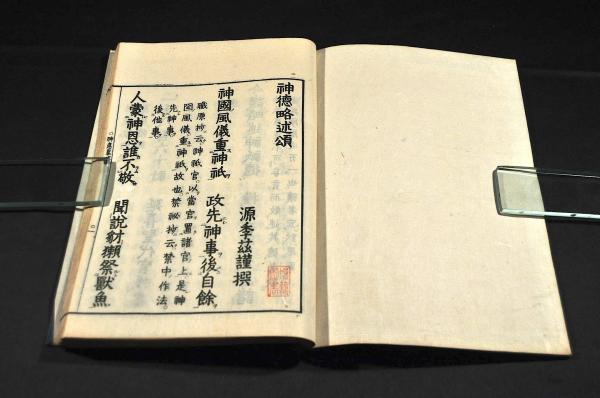 神德略述頌
源季茲謹撰
神國風儀重神祇 政先神事後自餘
職原抄云神祇官以當官置諸官上是神
國風儀重神祇故也禁祕抄云禁中作法
先神事
後他事
人蒙神恩誰不敬 聞說豺獺祭獸魚